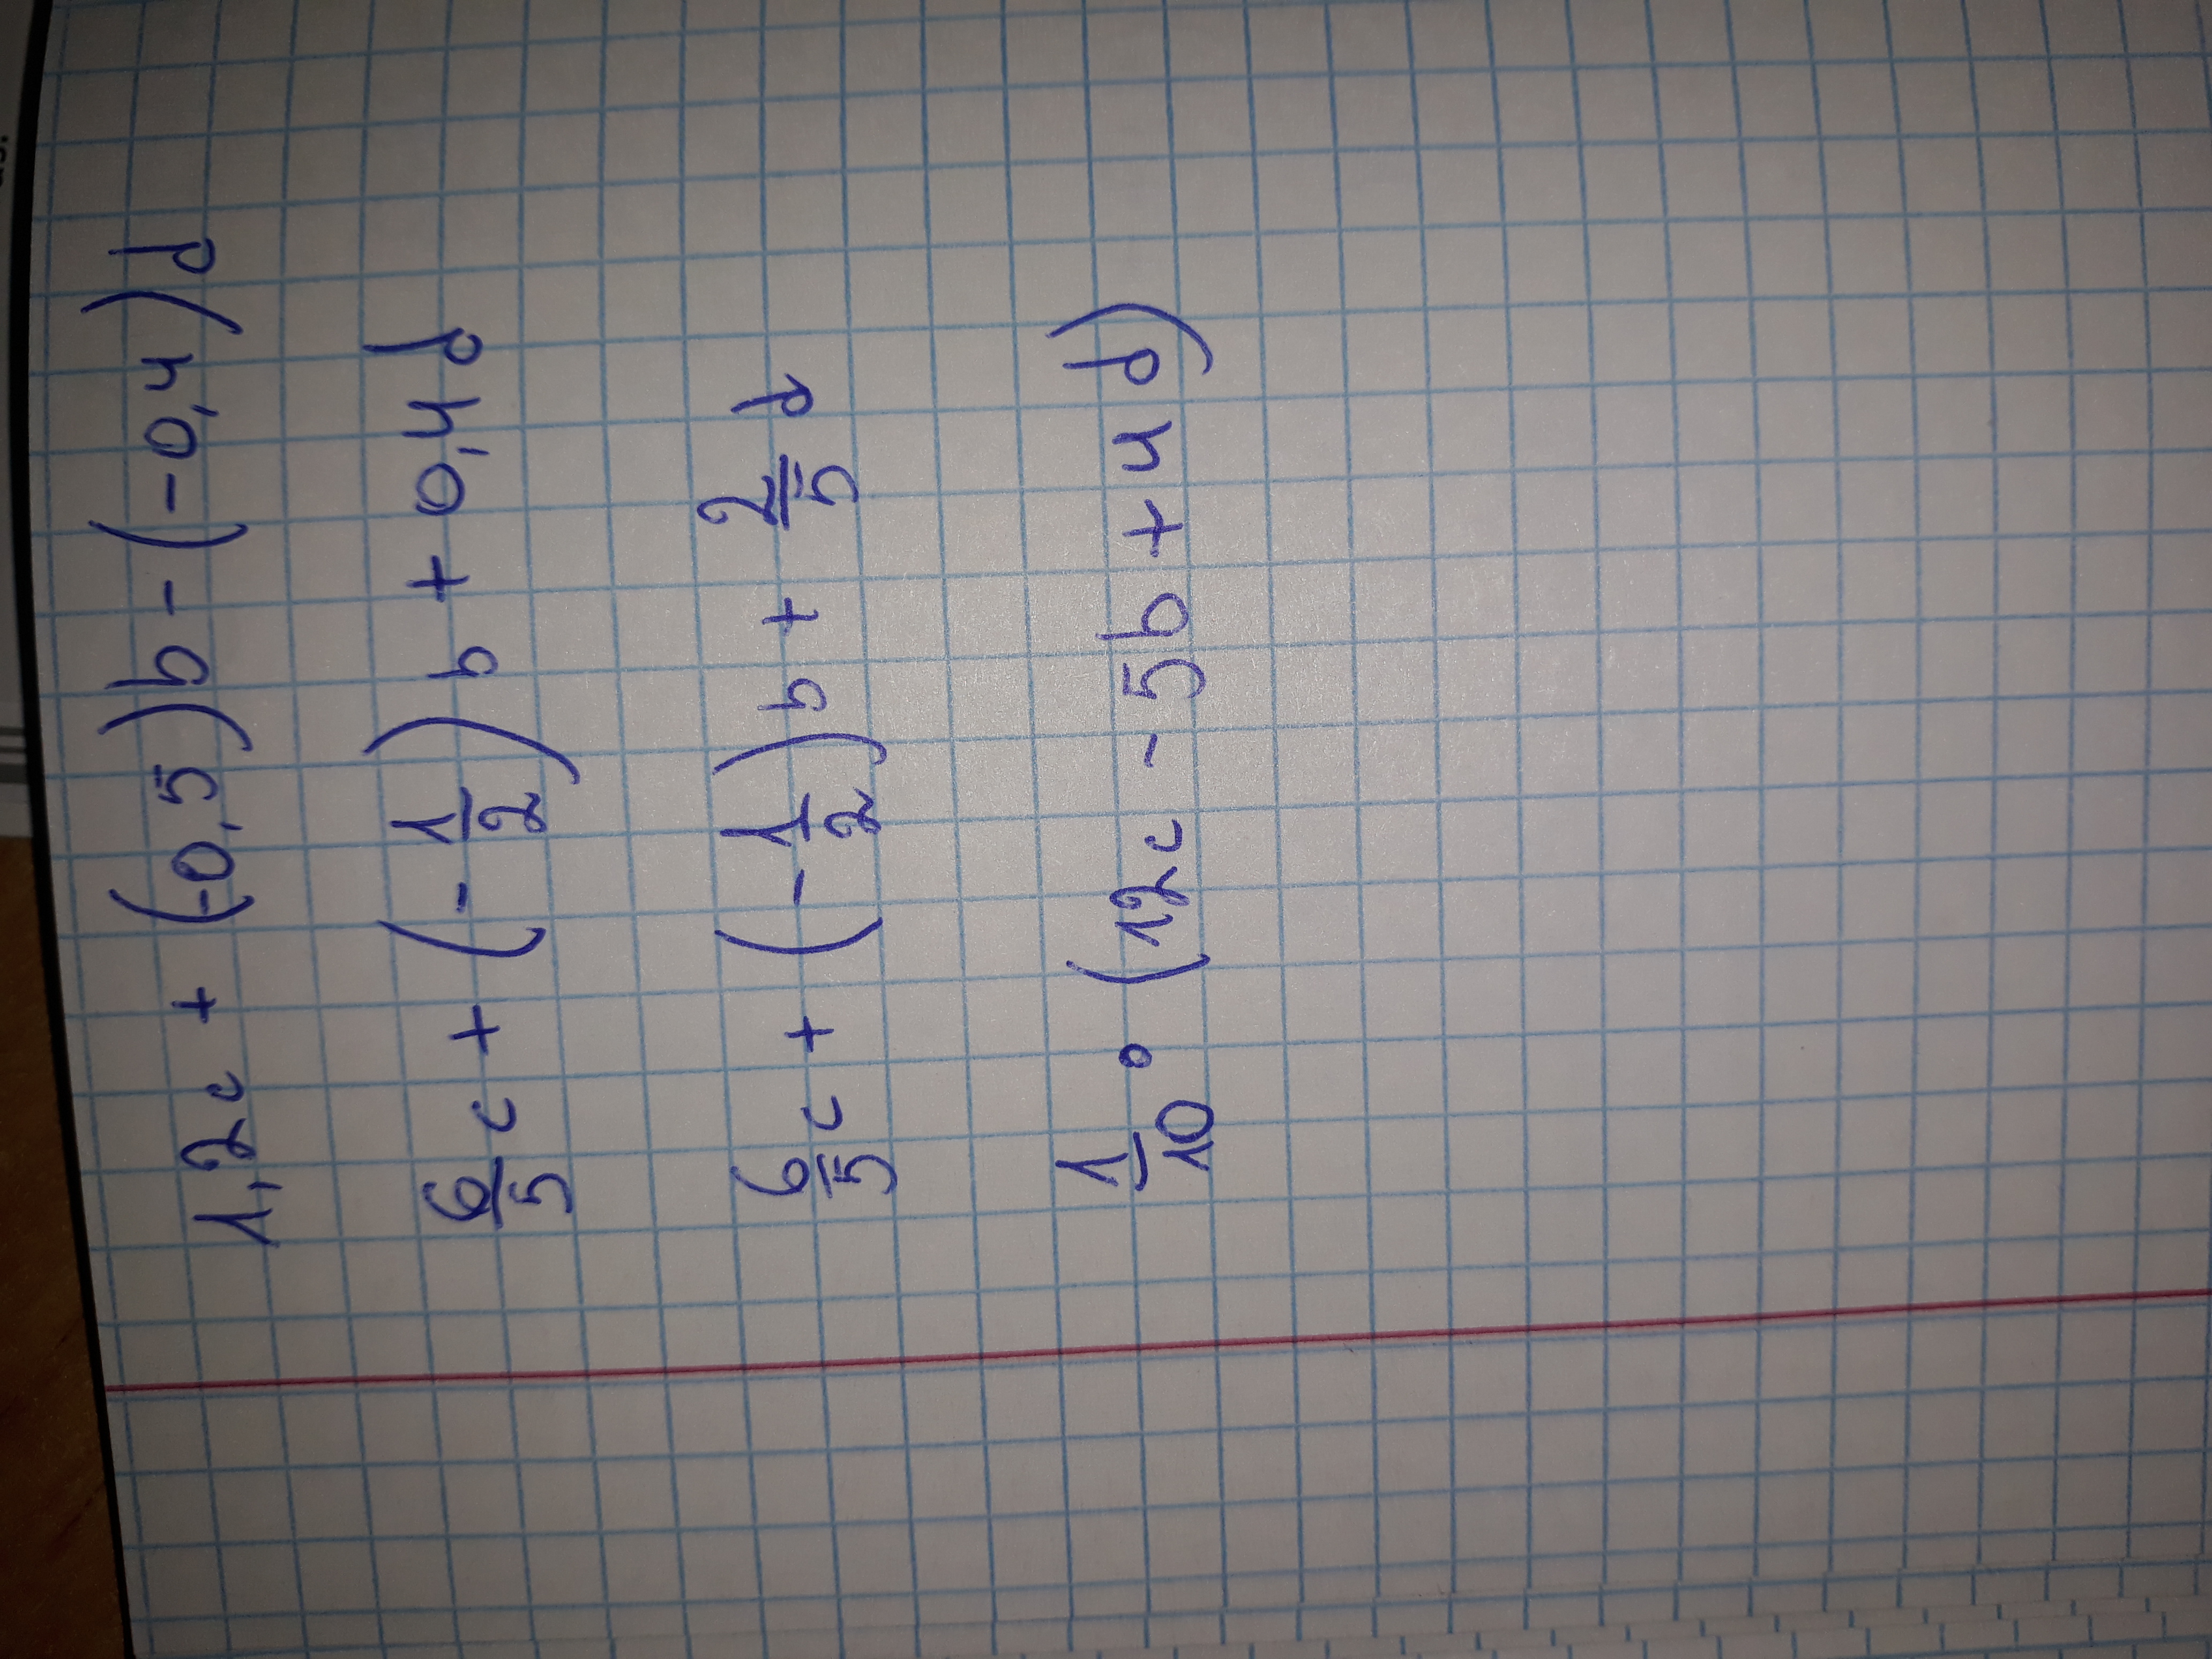 1,2c + (-0,5)b - (-0,4)d
6/5 c + (-1/2) b + 0,4d
6/5 c + (-1/2) b + 2/5 d
1/10 ∘ (12c - 5b + 4d)